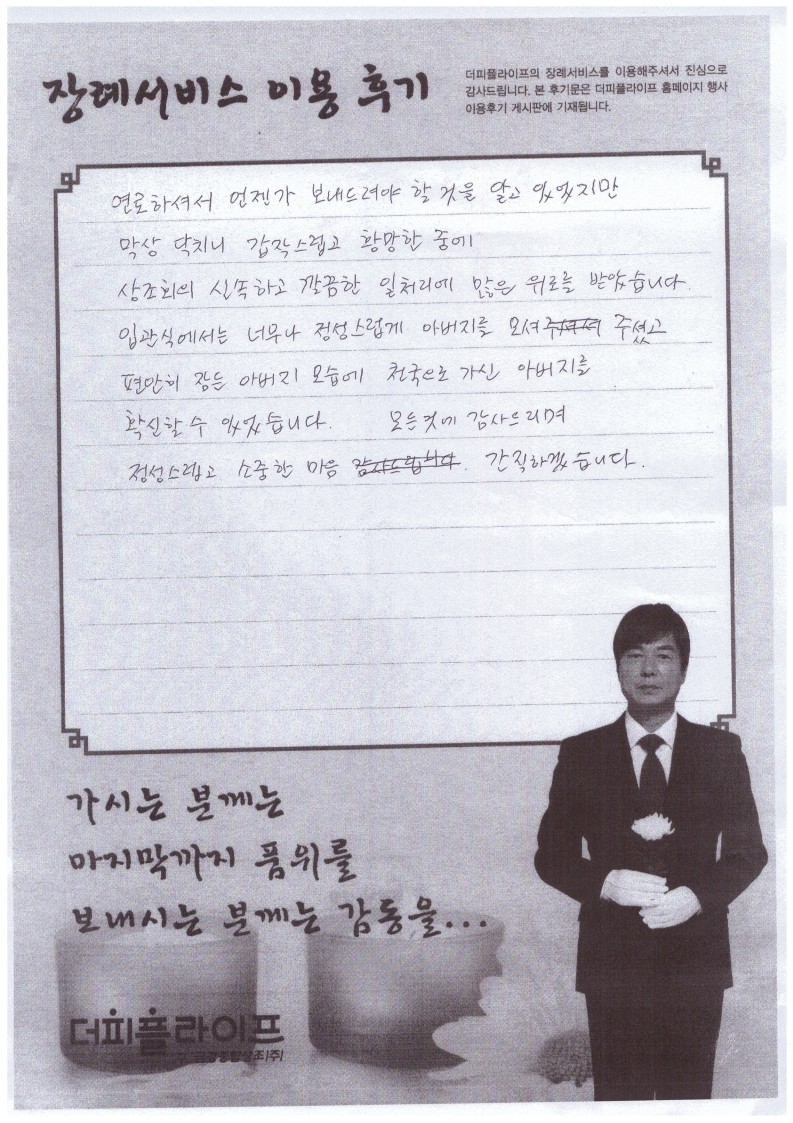 장례서비스 이용 후기
더피플라이프의 장례서비스를 이용해주셔서 진심으로
감사드립니다. 본 후기문은 더피플라이프 홈페이지 행사
이용후기 게시판에 기재됩니다.
연로하셔서 언젠가 보내드려야 할 것을 알고 있었지만
막상 닥치니 갑작스럽고 황망한 중에
상조회의 신속하고 깔끔한 일처리에 많은 위로를 받았습니다.
입관식에서는 너무나 정성스럽게 아버지를 모셔 주셨고
편안히 잠든 아버지 모습에 천국으로 가신 아버지를
확신할 수 있었습니다. 모든것에 감사드리며
정성스럽고 소중한 마음 감사드립니다. 간직하겠습니다.
가시는 분께는
마지막까지 품위를
보내시는 분께는 감동을...
더피플라이프